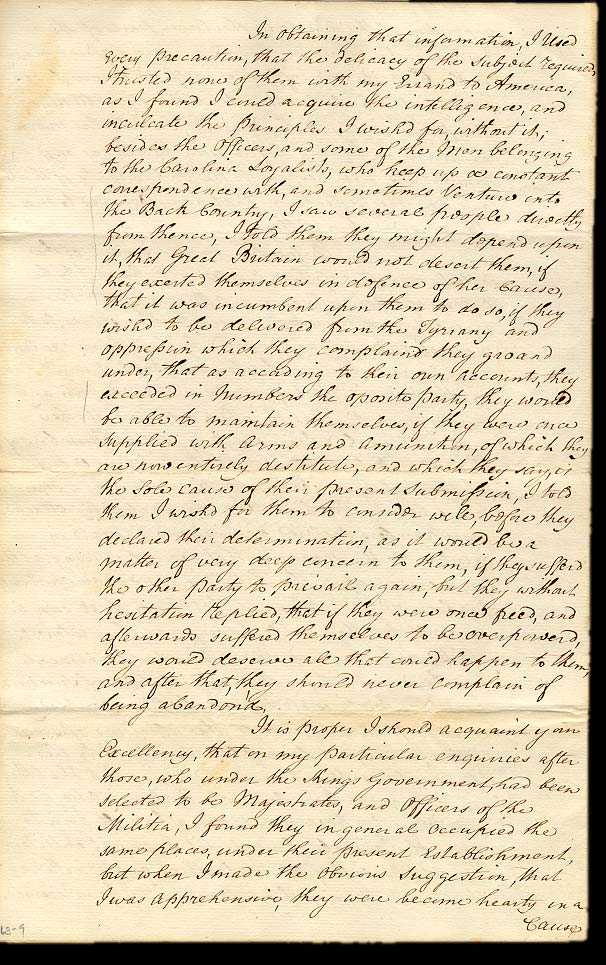 In obtaining that information, I used
every precaution, that the Delicacy of the Subject required,
I trusted none of them with my Errand to America,
as I found I could acquire the intelligence, and
inculcate the principles I wish'd for, without it;
besides the Officers, and some of the Men belonging
to the Carolina Loyalists, who keep up a constant
correspondence with, and sometimes Venture into
the Back Country, I saw several people directly
from thence, I told them they might depend upon
it, that Great Britain would not desert them, if
they exerted themselves in defence of her Cause,
that it was incumbent upon them to do so, if they
wish'd to be delivered from the Tyrrany and
oppression which they complain'd they groand
under, that as according to their own accounts, they
exceeded in Numbers the oposite party, they would
be able to maintain themselves, if they were once
supplied with Arms and Amunition, of which they
are now entirely destitute, and which they say, is
the sole cause of their present Submission, I told
them I wish'd for them to consider well, before they
declared their determination, as it would be a
matter of very deep concern to them, if they sufferd
the other party to prevail again, but they without
hesitation Replied, that if they were once freed, and
afterwards suffered themselves to be overpowerd,
they would deserve all that could happen to them,
and after that, they should never complain of
being abandon'd.
It is proper I should acquaint your
Excellency, that on my particular enquiries after
those, who under the Kings Government, had been
selected to be Majestrates, and Officers of the
Militia, I found they in general occupied the
same places, under their present Establishment,
but when I made the Obvious Suggestion, that
I was apprehensive, they were become hearty in a
Cause